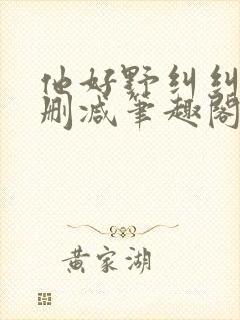 他好野纠纠
删减笔趣阁
黄家湖